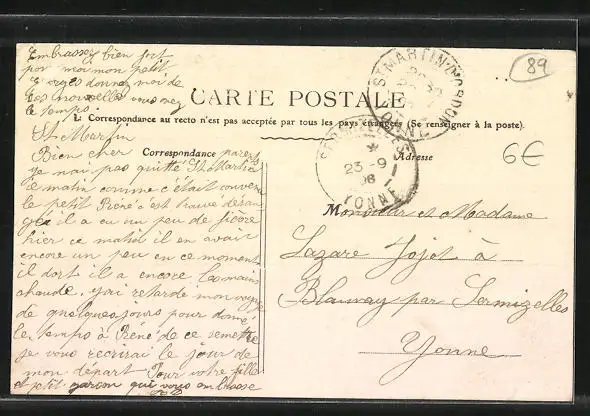 Embrassez bien fort
por moi mon petit
Georges donnez moi de
ces nouvelle vous nez
le temps.
89
ST MARTIN-D'ORDON
YONNE
CARTE POSTALE
La Correspondance au recto n'est pas acceptée par tous les pays étrangers (Se renseigner à la poste).
6€
St Martin
Bien cher parents
Correspondance
Adresse
23 -9
08
YONNE
je nai pas quitté St Martin
ce matin comme c'était convenu
le petit Réné c'est trouvé déran
gé il a eu un peu de fièvre
hier ce matin il en avait
encore un peu en ce moment
il dort il a encore les mains
chaude. j'ai retardé mon voyage
de quelques jours pour donné
le temps à Réné de ce remettre
je vous recrirai le jour de
mon départ Pour votre fille
et petit garçon qui vous embrasse
Monsieur et Madame
Lazare Jojot à
Blannay par Sermizelles
Yonne